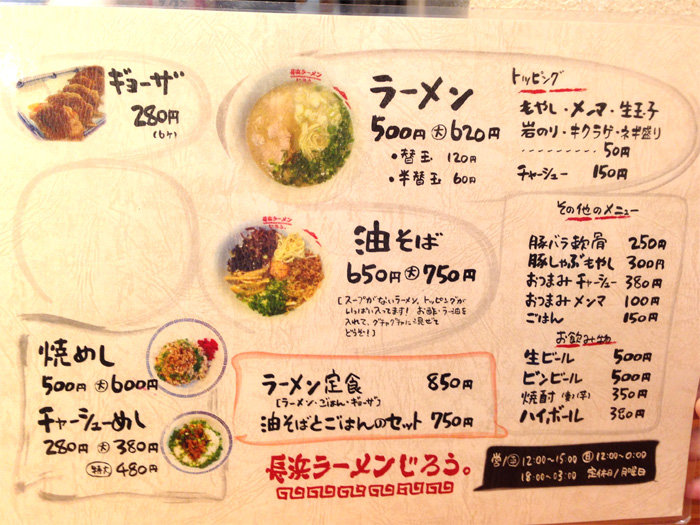 ギョーザ
280円
(6ケ)
長浜ラーメン
じろう。
ラーメン
500円 大 620円
・替玉 120円
・半替玉 60円
トッピング
もやし・メンマ・生玉子
岩のり・キクラゲ・ネギ盛り
50円
チャーシュー 150円
長浜ラーメン
じろう。
油そば
650円 大 750円
[スープがないラーメン。トッピングが
いっぱい入ってます! お酢・ラー油を
入れて、グチャグチャに混ぜて
どうぞ!]
その他のメニュー
豚バラ軟骨 250円
豚しゃぶもやし 300円
おつまみチャーシュー 380円
おつまみメンマ 100円
ごはん 150円
お飲み物
生ビール 500円
ビンビール 500円
焼酎(麦/芋) 350円
ハイボール 380円
焼めし
500円 大 600円
チャーシューめし
280円 大 380円
特大 480円
ラーメン定食 850円
[ラーメン・ごはん・ギョーザ]
油そばとごはんのセット 750円
長浜ラーメンじろう。
営/ 12:00〜15:00 日 12:00〜0:00
18:00〜03:00 定休日/月曜日